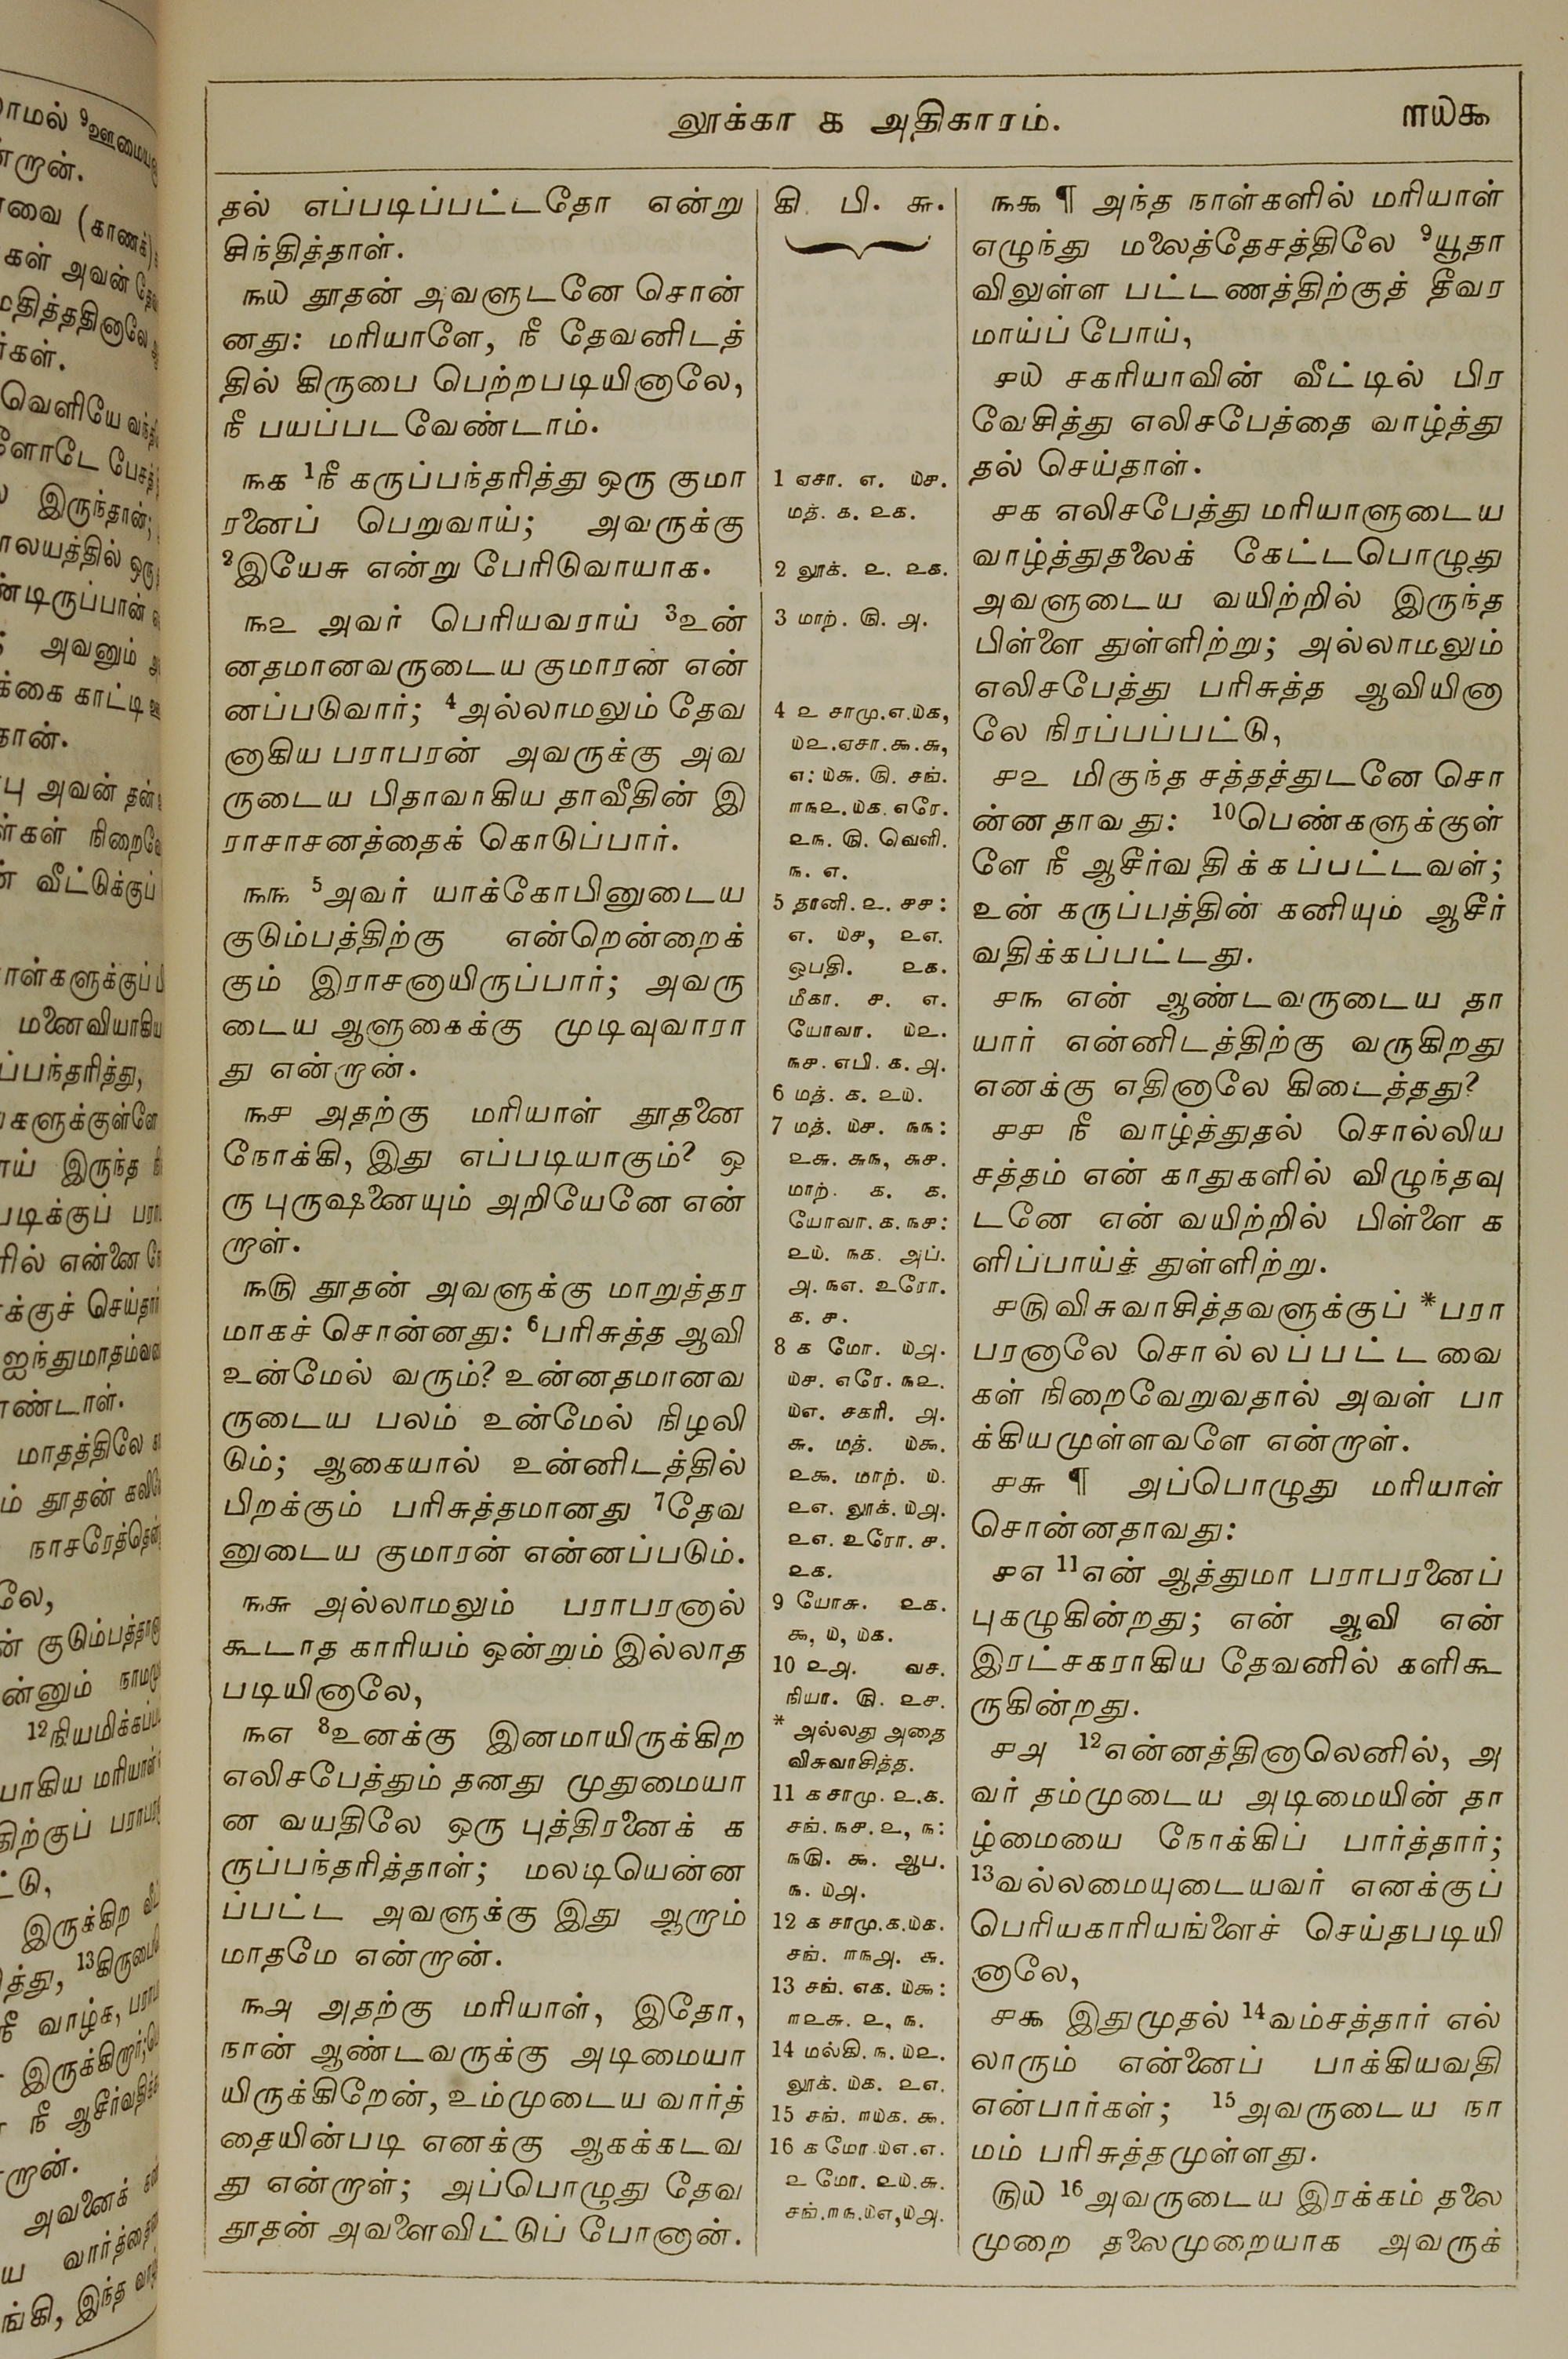 லூக்கா ௧ அதிகாரம்.
௱௰௯
தல் எப்படிப்பட்டதோ என்று
சிந்தித்தாள்.
௩௰ தூதன் அவளுடனே சொன்
னது: மரியாளே, நீ தேவனிடத்
தில் கிருபை பெற்றபடியினாலே,
நீ பயப்படவேண்டாம்.
௩௧ 1நீ கருப்பந்தரித்து ஒரு குமா
ரனைப் பெறுவாய்; அவருக்கு
2இயேசு என்று பேரிடுவாயாக.
௩௨ அவர் பெரியவராய் 3உன்
னதமானவருடைய குமாரன் என்
னப்படுவார்; 4அல்லாமலும் தேவ
னாகிய பராபரன் அவருக்கு அவ
ருடைய பிதாவாகிய தாவீதின் இ
ராசாசனத்தைக் கொடுப்பார்.
௩௩ 5அவர் யாக்கோபினுடைய
குடும்பத்திற்கு என்றென்றைக்
கும் இராசனாயிருப்பார்; அவரு
டைய ஆளுகைக்கு முடிவுவாரா
து என்றான்.
௩௪ அதற்கு மரியாள் தூதனை
நோக்கி, இது எப்படியாகும்? ஒ
ரு புருஷனையும் அறியேனே என்
றாள்.
௩௫ தூதன் அவளுக்கு மாறுத்தர
மாகச் சொன்னது: 6பரிசுத்த ஆவி
உன்மேல் வரும்? உன்னதமானவ
ருடைய பலம் உன்மேல் நிழலி
டும்; ஆகையால் உன்னிடத்தில்
பிறக்கும் பரிசுத்தமானது 7தேவ
னுடைய குமாரன் என்னப்படும்.
௩௬ அல்லாமலும் பராபரனால்
கூடாத காரியம் ஒன்றும் இல்லாத
படியினாலே,
௩௭ 8உனக்கு இனமாயிருக்கிற
எலிசபேத்தும் தனது முதுமையா
ன வயதிலே ஒரு புத்திரனைக் க
ருப்பந்தரித்தாள்; மலடியென்ன
ப்பட்ட அவளுக்கு இது ஆறாம்
மாதமே என்றான்.
௩௮ அதற்கு மரியாள், இதோ,
நான் ஆண்டவருக்கு அடிமையா
யிருக்கிறேன், உம்முடைய வார்த்
தையின்படி எனக்கு ஆகக்கடவ
து என்றாள்; அப்பொழுது தேவ
தூதன் அவளைவிட்டுப் போனான்.
கி. பி. ௬.
1 ஏசா. ௭. ௰௪.
மத். ௧. ௨௧.
2 லூக். ௨. ௨௧.
3 மாற். ௫. ௮.
4 ௨ சாமு.௭.௰௧,
௰௨.ஏசா.௯.௬,
௭: ௰௬. ௫. சங்.
௱௩௨.௰௧.எரே.
௨௩. ௫. வெளி.
௩. ௭.
5 தானி. ௨. ௪௪:
௭. ௰௪, ௨௭.
ஒபதி. ௨௧.
மீகா. ௪. ௭.
யோவா. ௰௨.
௩௪. எபி. ௧. ௮.
6 மத். ௧. ௨௰.
7 மத். ௰௪. ௩௩:
௨௬. ௬௩, ௬௪.
மாற். ௧. ௧.
யோவா. ௧. ௩௪:
௨௰. ௩௧. அப்.
௮. ௩௭. உரோ.
௧. ௪.
8 ௧ மோ. ௰௮.
௰௪. எரே. ௩௨.
௰௭. சகரி. ௮.
௬. மத். ௰௯.
௨௯. மாற். ௰.
௨௭. லூக். ௰௮.
௨௭. உரோ. ௪.
௨௧.
9 யோசு. ௨௧.
௯, ௰, ௰௧.
10 ௨௮. வச.
நியா. ௫. ௨௪.
* அல்லது அதை
விசுவாசித்த.
11 ௧ சாமு. ௨.௧.
சங். ௩௪. ௨, ௩:
௩௫. ௯. ஆப.
௩. ௰௮.
12 ௧ சாமு.௧.௰௧.
சங். ௱௩௮. ௬.
13 சங். ௭௧. ௰௯:
௱௨௬. ௨, ௩.
14 மல்கி. ௩. ௰௨.
லூக். ௰௧. ௨௭.
15 சங். ௱௰௧. ௯.
16 ௧ மோ.௰௭.௭.
௨ மோ. ௨௰.௬.
சங்.௱௩.௰௭,௰௮.
௩௯ ¶ அந்த நாள்களில் மரியாள்
எழுந்து மலைத்தேசத்திலே 9யூதா
விலுள்ள பட்டணத்திற்குத் தீவர
மாய்ப் போய்,
௪௰ சகரியாவின் வீட்டில் பிர
வேசித்து எலிசபேத்தை வாழ்த்து
தல் செய்தாள்.
௪௧ எலிசபேத்து மரியாளுடைய
வாழ்த்துதலைக் கேட்டபொழுது
அவளுடைய வயிற்றில் இருந்த
பிள்ளை துள்ளிற்று; அல்லாமலும்
எலிசபேத்து பரிசுத்த ஆவியினா
லே நிரப்பப்பட்டு,
௪௨ மிகுந்த சத்தத்துடனே சொ
ன்னதாவது: 10பெண்களுக்குள்
ளே நீ ஆசீர்வதிக்கப்பட்டவள்;
உன் கருப்பத்தின் கனியும் ஆசீர்
வதிக்கப்பட்டது.
௪௩ என் ஆண்டவருடைய தா
யார் என்னிடத்திற்கு வருகிறது
எனக்கு எதினாலே கிடைத்தது?
௪௪ நீ வாழ்த்துதல் சொல்லிய
சத்தம் என் காதுகளில் விழுந்தவு
டனே என் வயிற்றில் பிள்ளை க
ளிப்பாய்த் துள்ளிற்று.
௪௫ விசுவாசித்தவளுக்குப் *பரா
பரனாலே சொல்லப்பட்டவை
கள் நிறைவேறுவதால் அவள் பா
க்கியமுள்ளவளே என்றாள்.
௪௬ ¶ அப்பொழுது மரியாள்
சொன்னதாவது:
௪௭ 11என் ஆத்துமா பராபரனைப்
புகழுகின்றது; என் ஆவி என்
இரட்சகராகிய தேவனில் களிகூ
ருகின்றது.
௪௮ 12என்னத்தினாலெனில், அ
வர் தம்முடைய அடிமையின் தா
ழ்மையை நோக்கிப் பார்த்தார்;
13வல்லமையுடையவர் எனக்குப்
பெரியகாரியங்களைச் செய்தபடியி
னாலே,
௪௯ இதுமுதல் 14வம்சத்தார் எல்
லாரும் என்னைப் பாக்கியவதி
என்பார்கள்; 15அவருடைய நா
மம் பரிசுத்தமுள்ளது.
௫௰ 16அவருடைய இரக்கம் தலை
முறை தலைமுறையாக அவருக்